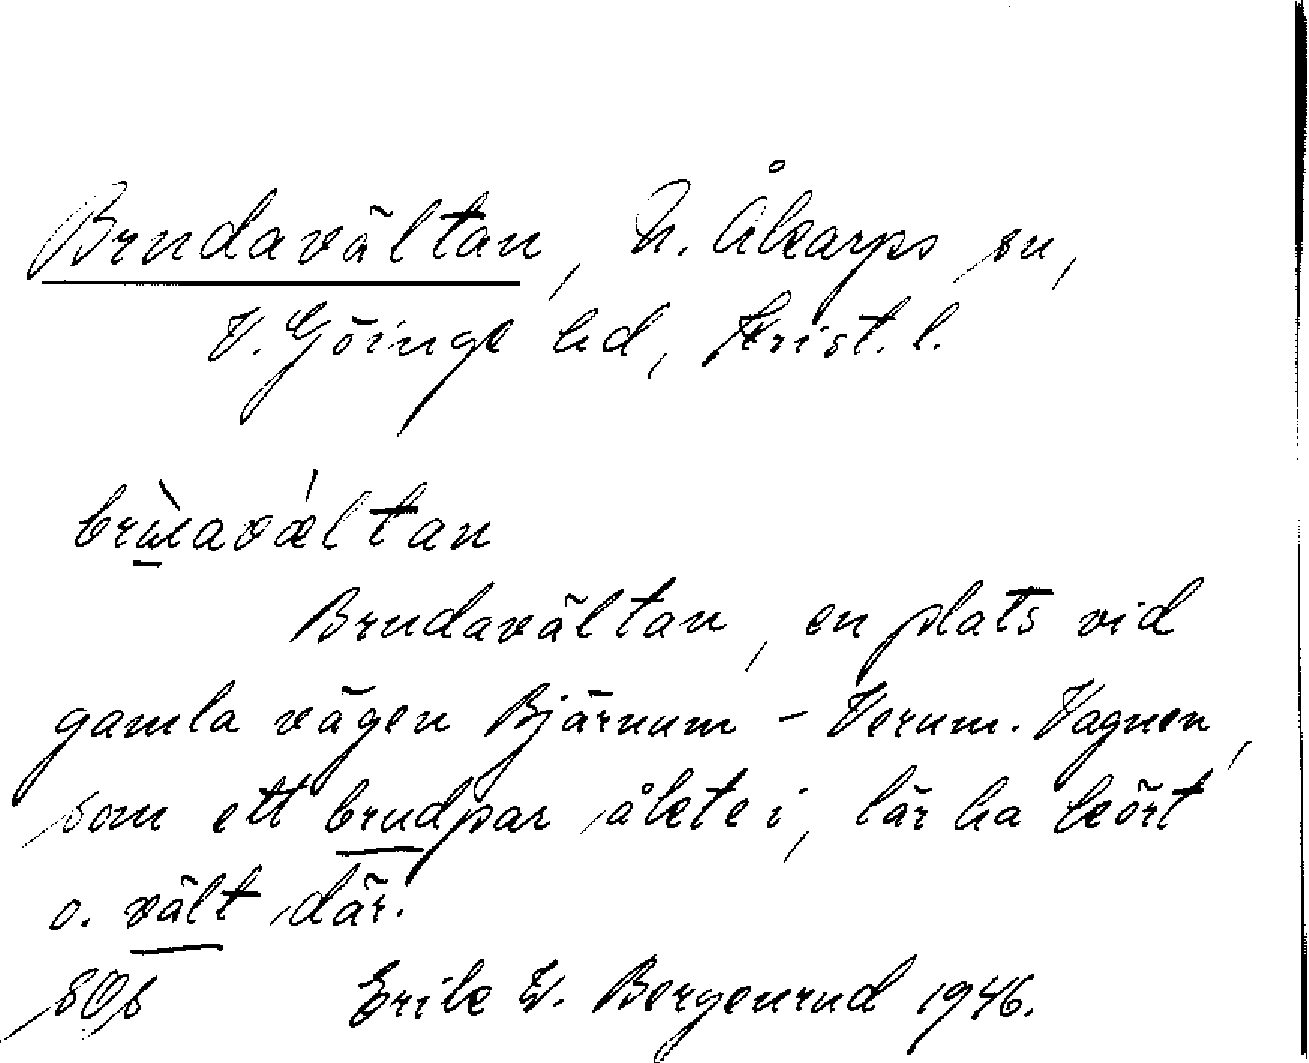 Brudavältan, N. Åkarps sn,
V. Göinge hd, Krist. l.
brùavǽltan
Brudavältan, en plats vid
gamla vägen Bjärnum - Verum. Vagnen,
som ett brudpar åkte i, lär ha kört
o. vält där.
Erik W. Bergenrud 1946.